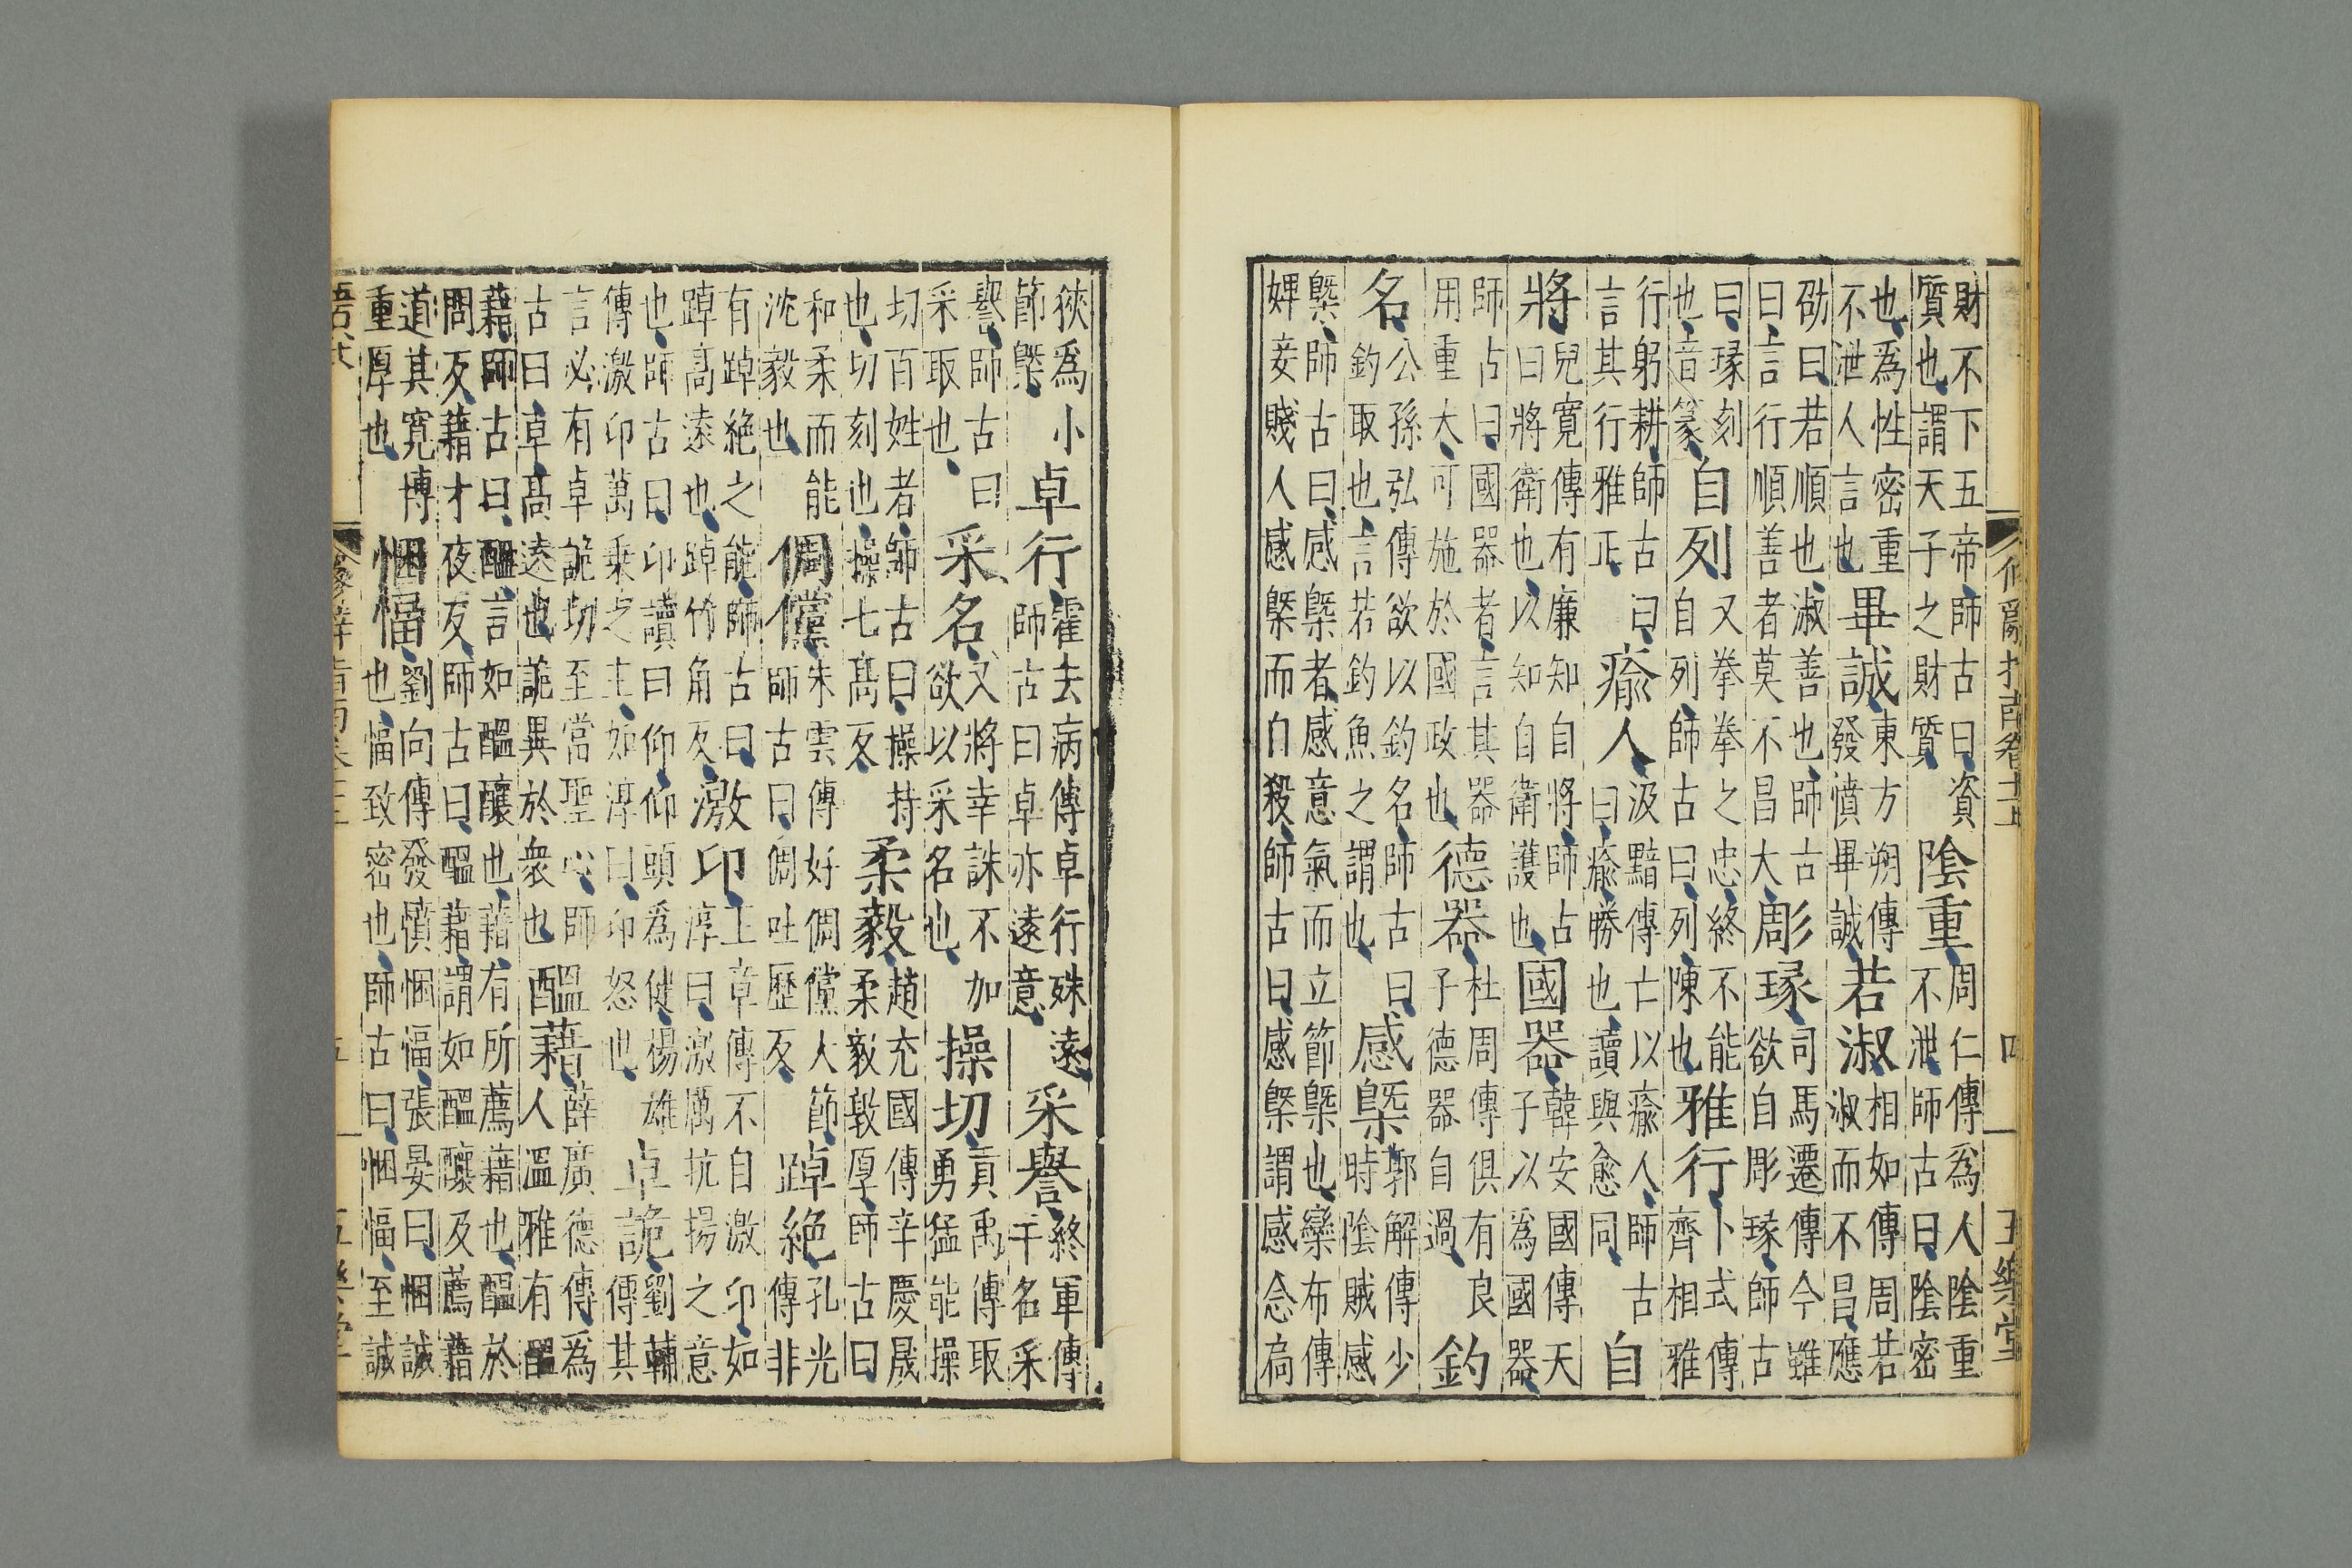 財不下五帝師古曰資
質也謂天子之財質
陰重
周仁傳為人陰重
不泄師古曰陰密
也為性密重
不泄人言也
畢誠
東方朔傳
發憤畢誠
若淑
相如傳周若
淑而不昌應
劭曰若順也淑善也師古
曰言行順善者莫不昌大
彫瑑
司馬遷傳今雖
欲自彫瑑師古
曰瑑刻
也音篆
自列
又拳拳之忠終不能
自列師古曰列陳也
雅行
卜式傳
齊相雅
行躬耕師古曰
言其行雅正
瘉人
汲黯傳亡以瘉人師古
曰瘉勝也讀與愈同
自
將
兒寛傳有廉知自將師古
曰將衛也以知自衛護也
國器
韓安國傳天
子以為國器
師古曰國器者言其器
用重大可施於國政也
德器
杜周傳俱有良
子德器自過
釣
名
公孫弘傳欲以釣名師古曰
釣取也言若釣魚之謂也
感槩
郭解傳少
時陰賊感
槩師古曰感槩者感意氣而立節槩也欒布傳
婢妾賤人感槩而自殺師古曰感槩謂感念局
五樂堂
狹為小
節槩
卓行
霍去病傳卓行殊遠
師古曰卓亦遠意
采譽
終軍傳
干名采
譽師古曰
采取也
采名
又將幸誅不加
欲以采名也
操切
貢禹傳取
勇猛能操
切百姓者師古曰操持
也切刻也操七髙反
柔毅
趙充國傳辛慶晟
柔毅敦厚師古曰
和柔而能
沈毅也
倜儻
朱雲傳好倜儻大節
師古曰倜吐歷反
踔絶
孔光
傳非
有踔絶之能師古曰
踔髙遠也踔竹角反
激卬
王章傳不自激卬如
淳曰激厲抗揚之意
也師古曰卬讀曰仰仰頭為健楊雄
傳激卬萬乗之主如淳曰卬怒也
卓詭
劉輔
傳其
言必有卓詭切至當聖心師
古曰卓髙遠也詭異於衆也
醖藉
薛廣德傳為
人溫雅有醖
藉師古曰醖言如醖釀也藉有所薦藉也醖於
問反藉才夜反師古曰醖藉謂如醖釀及薦藉
道其寛博
重厚也
悃愊
劉向傳發憤悃愊張晏曰悃誠
也愊致密也師古曰悃愊至誠